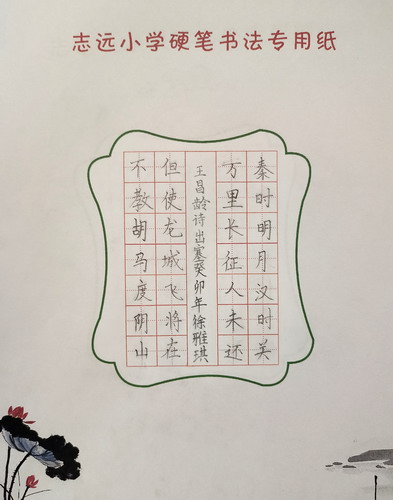 志远小学硬笔书法专用纸
秦时明月汉时关
万里长征人未还
王昌龄诗出塞癸卯年徐雅琪
但使龙城飞将在
不教胡马度阴山